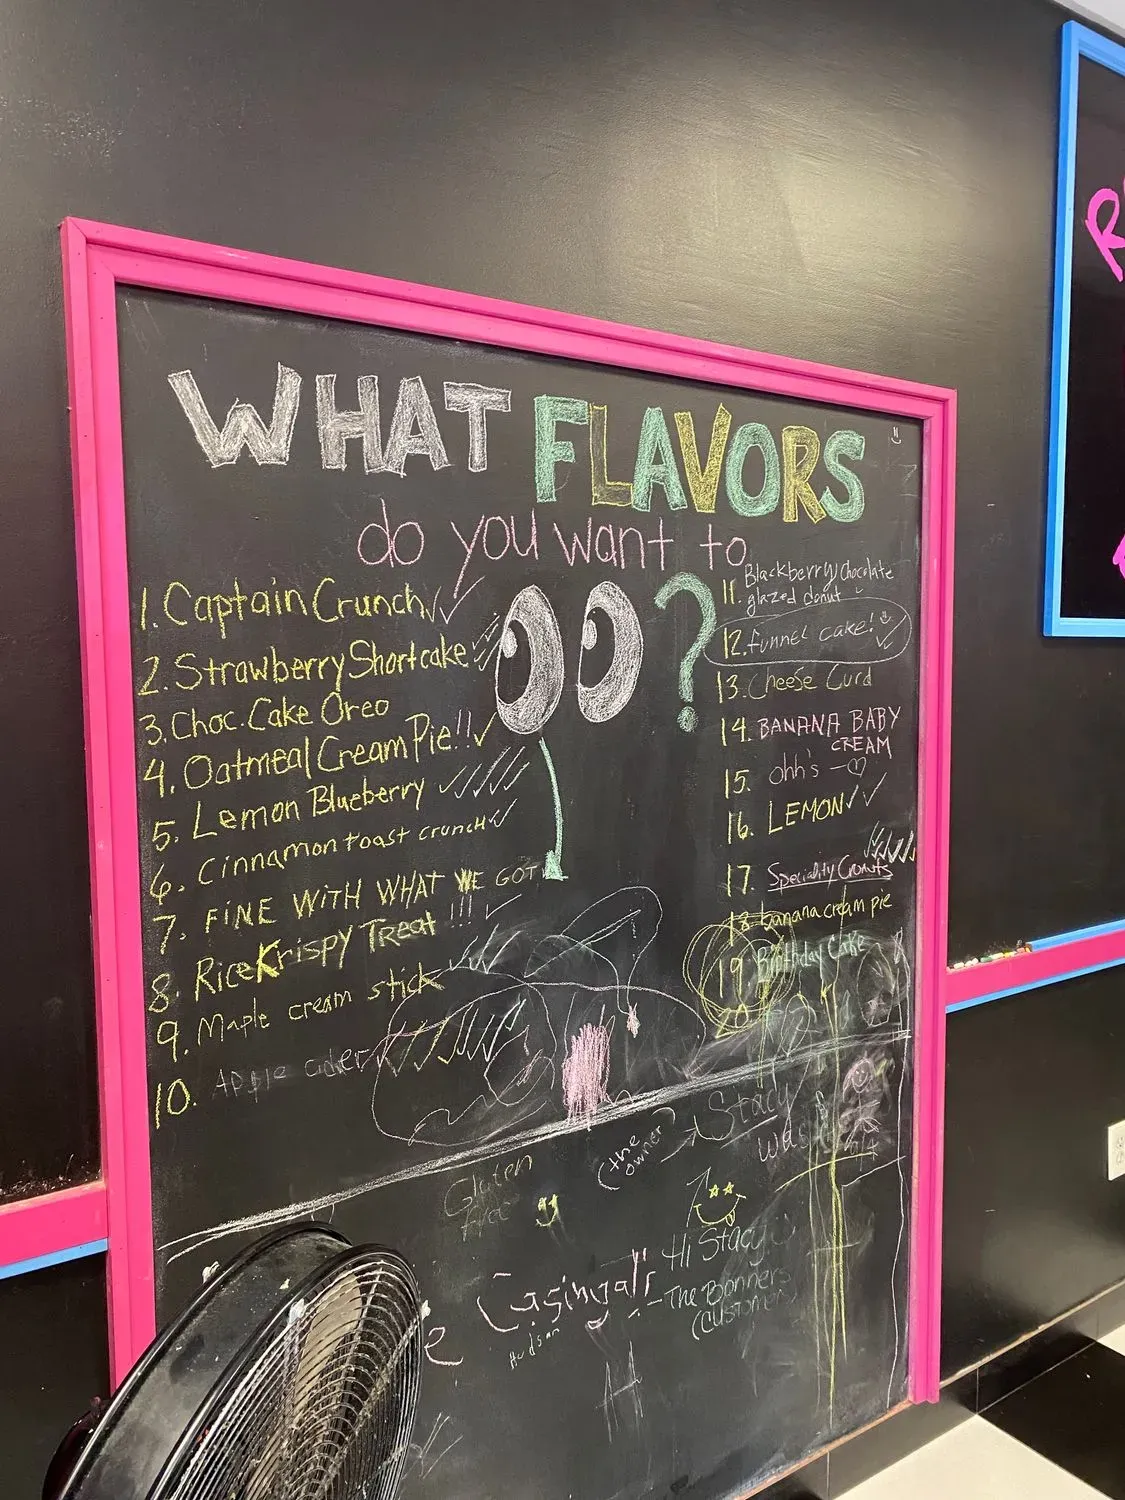 WHAT FLAVORS
do you want to
?
1. Captain Crunch
2. Strawberry Shortcake
3. Choc. Cake Oreo
4. Oatmeal Cream Pie!!
5. Lemon Blueberry
6. Cinnamon toast crunch
7. FINE WITH WHAT WE GOT
8. Rice Krispy Treat !!!
9. Maple cream stick
10. Apple cider
11. Blackberry/Chocolate
glazed donut
12. funnel cake!
13. Cheese Curd
14. BANANA BABY
CREAM
15. ohh's
16. LEMON
17. Speciality Cronuts
18. banana cream pie
19 Birthday Cake
20
(the
owner)
Stacy
was
Gluten
free
Hi Stacy
- The Bonners
(customers)
Hudson